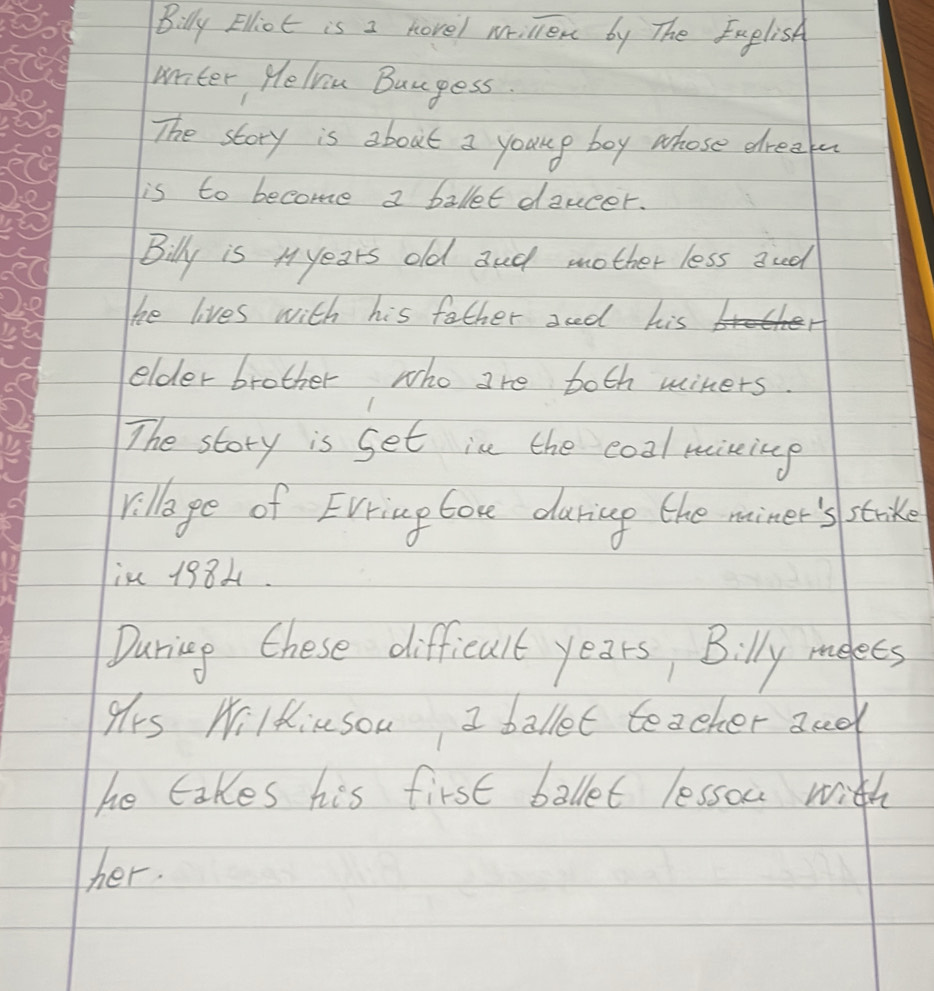 Billy Elliot is a novel written by The English
writer, Melvin Bungess.
The story is about a young boy whose dream
is to become a ballet dancer.
Billy is 11 years old and mother less and
he lives with his father and his brother
elder brother, who are both miners.
The story is Set in the coal mining
village of Evrington during the miner's strike
in 1984.
During these difficult years, Billy meets
Mrs Wilkinson, a ballet teacher and
he takes his first ballet lesson with
her.